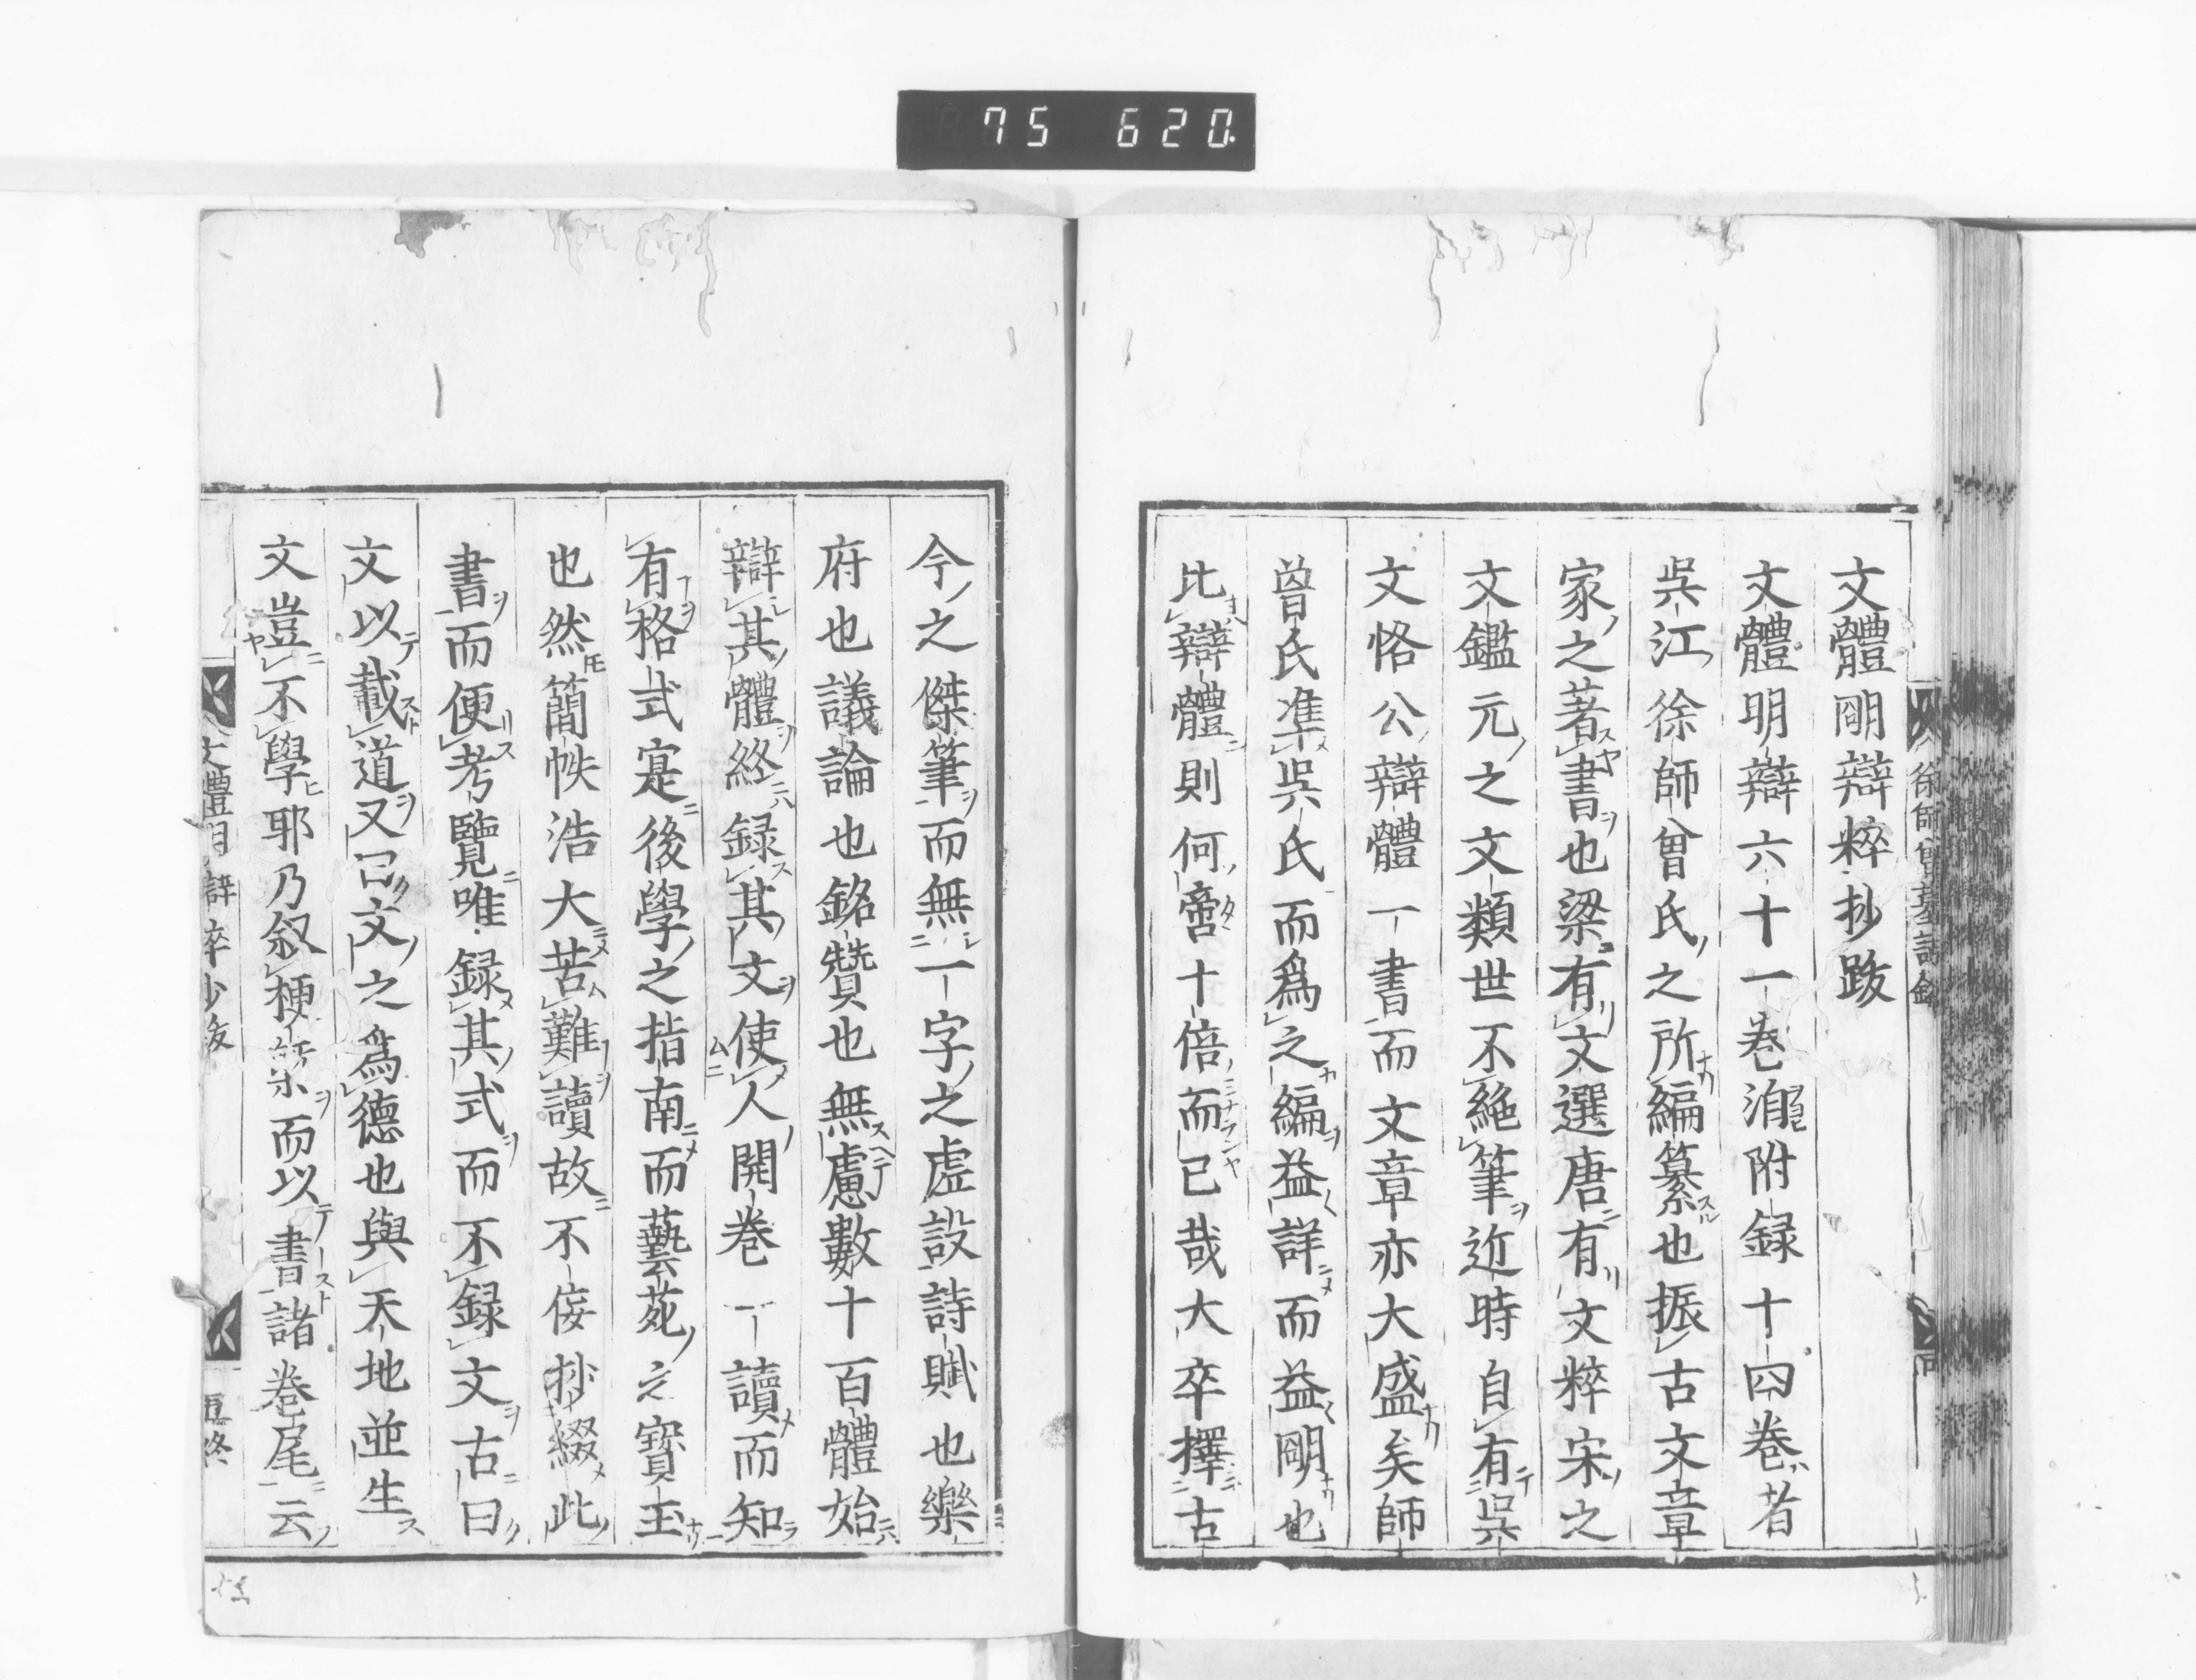 75 620
文體明辯粹抄跋
文體明辯六十一卷洎附録十四卷者
吳江徐師曾氏之所編纂也振古文章
家之著書也梁有文選唐有文粹宋之
文鑑元之文類世不絶筆近時自有吳
文恪公辯體一書而文章亦大盛矣師
曾氏準吳氏而爲之編益詳而益明也
比辯體則何啻十倍而已哉大卒擇古
今之傑筆而無一字之虛設詩賦也樂
府也議論也銘贊也無慮數十百體始
辯其體終録其文使人開卷一讀而知
有格式寔後學之指南而藝苑之寶玉
也然簡帙浩大苦難讀故不佞抄綴此
書而便考覽唯録其式而不録文古曰
文以載道又曰文之爲德也與天地並生
文豈不學耶乃叙梗槩而以書諸卷尾云